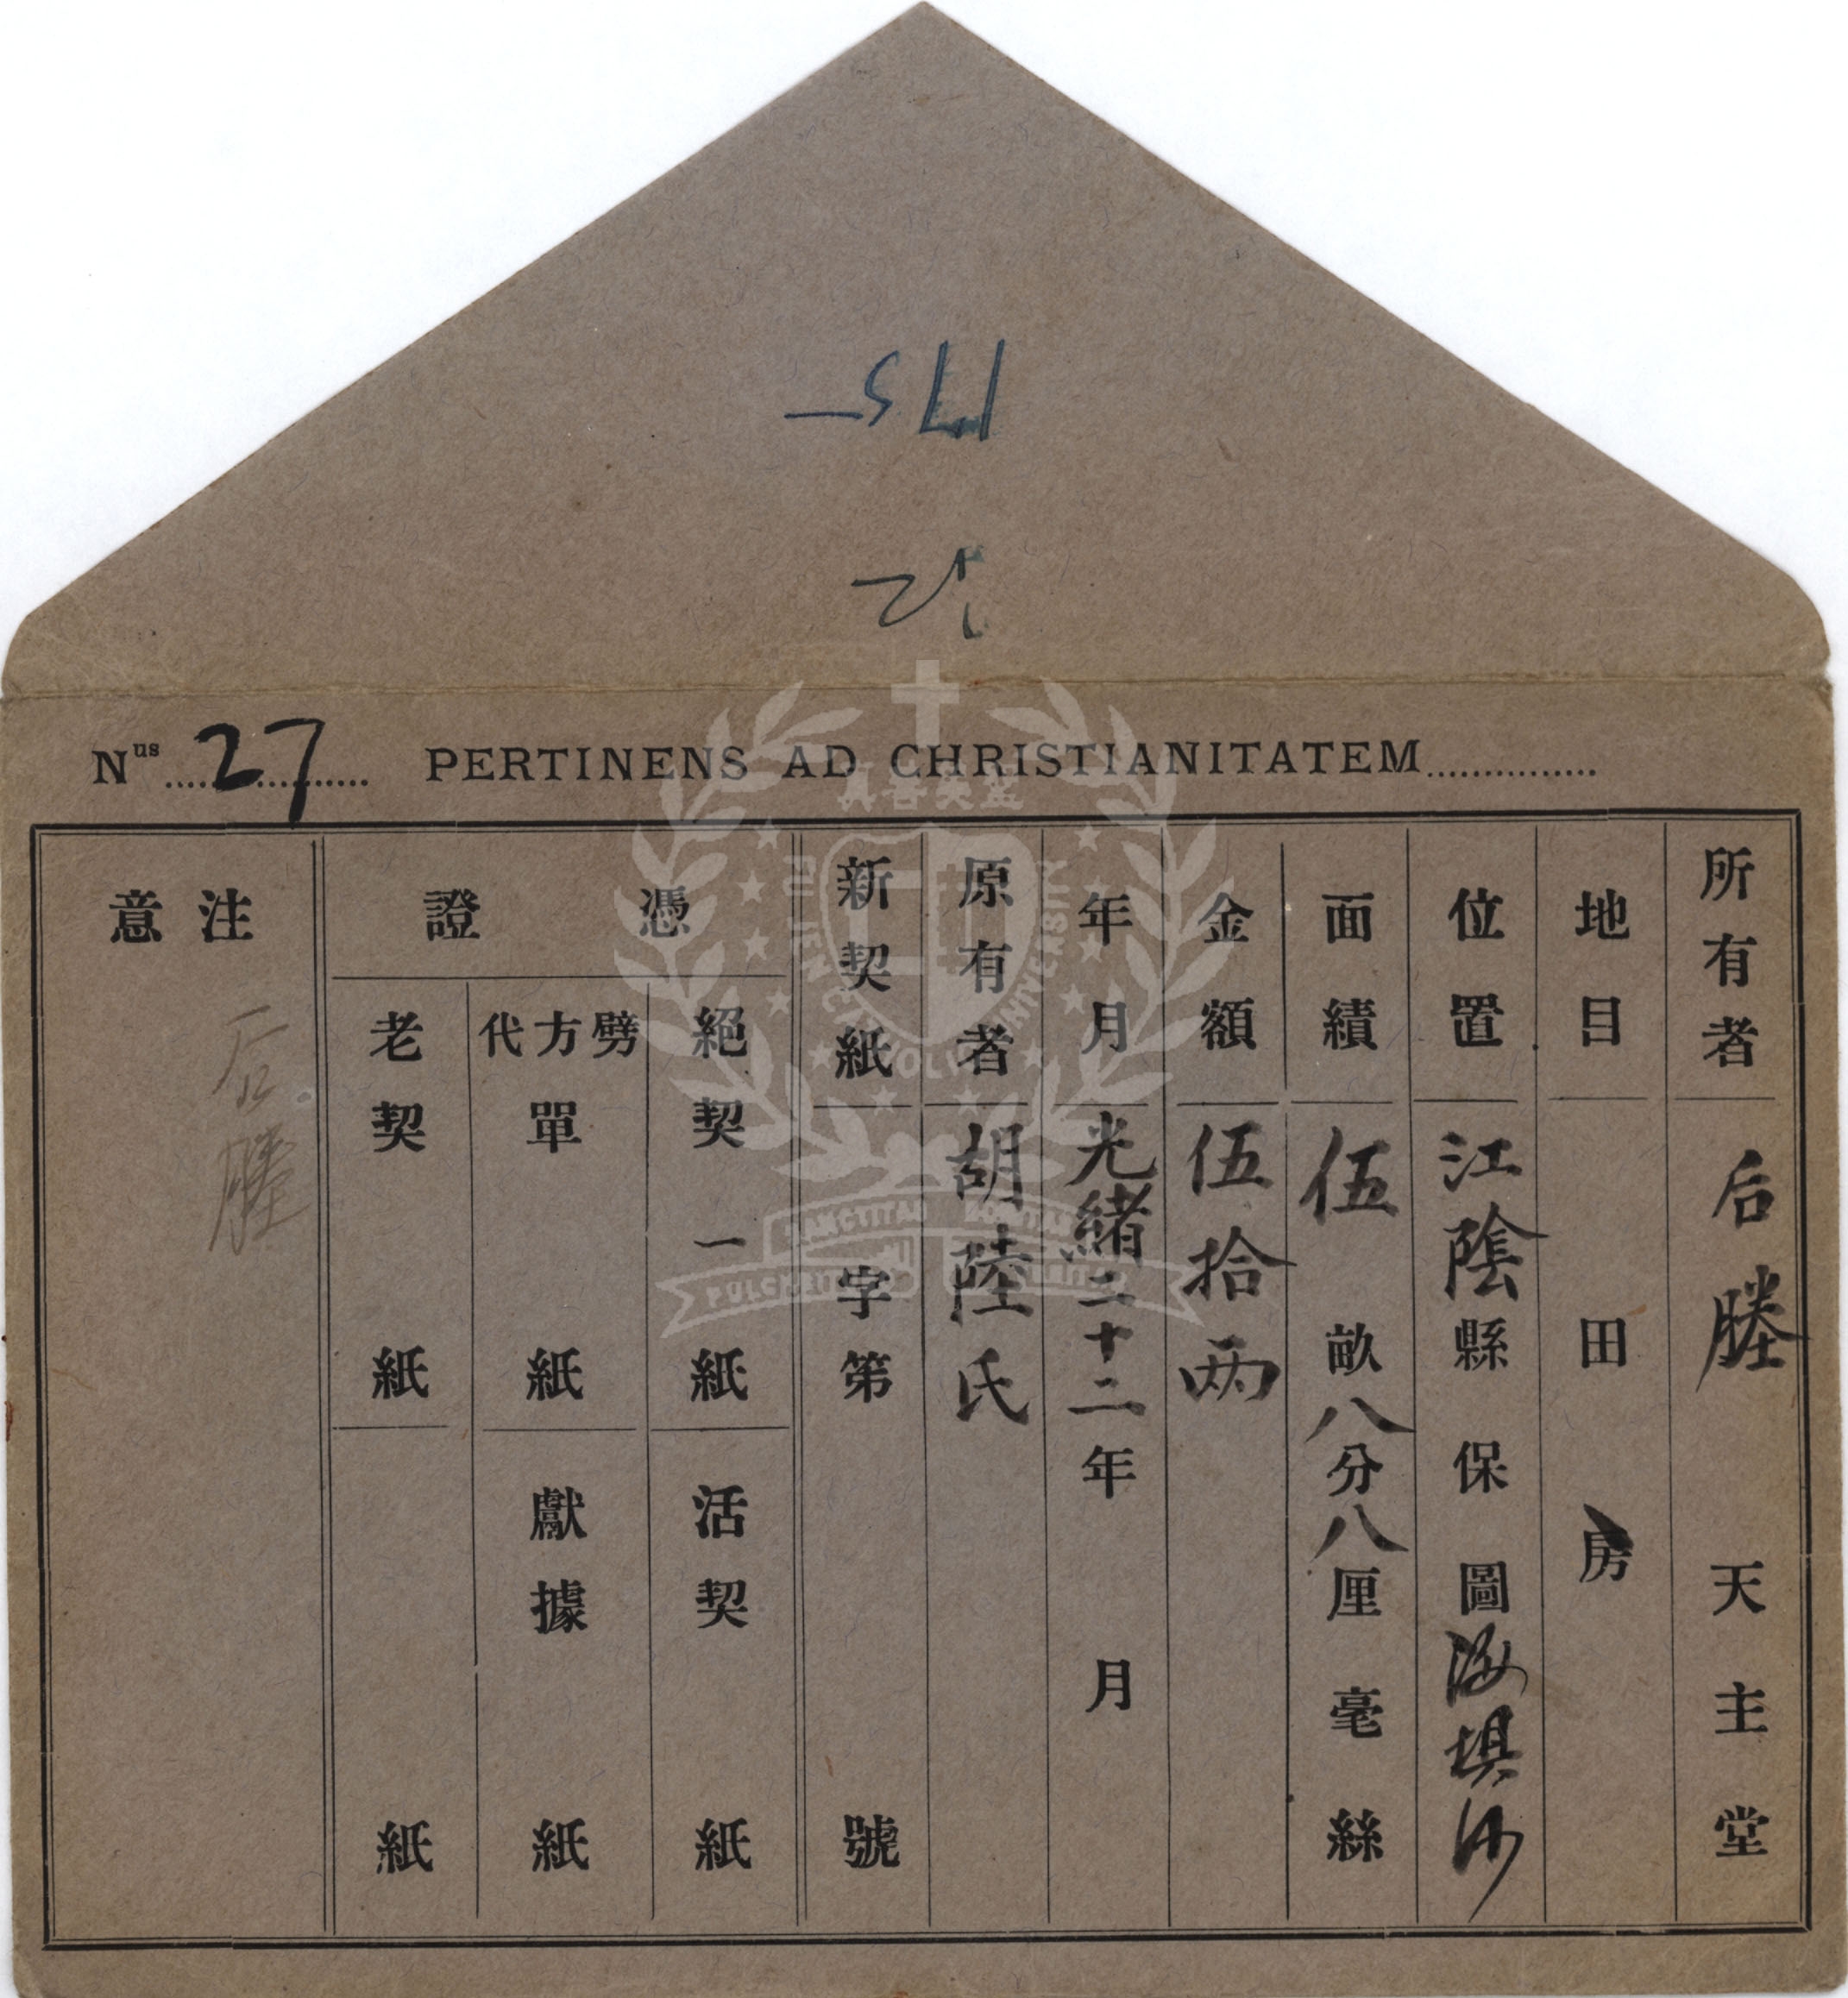 175
27
Nus 27 PERTINENS AD CHRISTIANITATEM
所有者 后塍 天主堂
地目 田 房
位置 江陰縣 保 圖 海壩沙
面績 伍畝八分八厘 毫 絲
金額 伍拾两
年月 光緒二十二年 月
原有者 胡陸氏
新契紙 字第 號
憑證
絕契 一紙
活契 紙
劈方代單 紙
獻據 紙
老契 紙
紙
注意
后塍